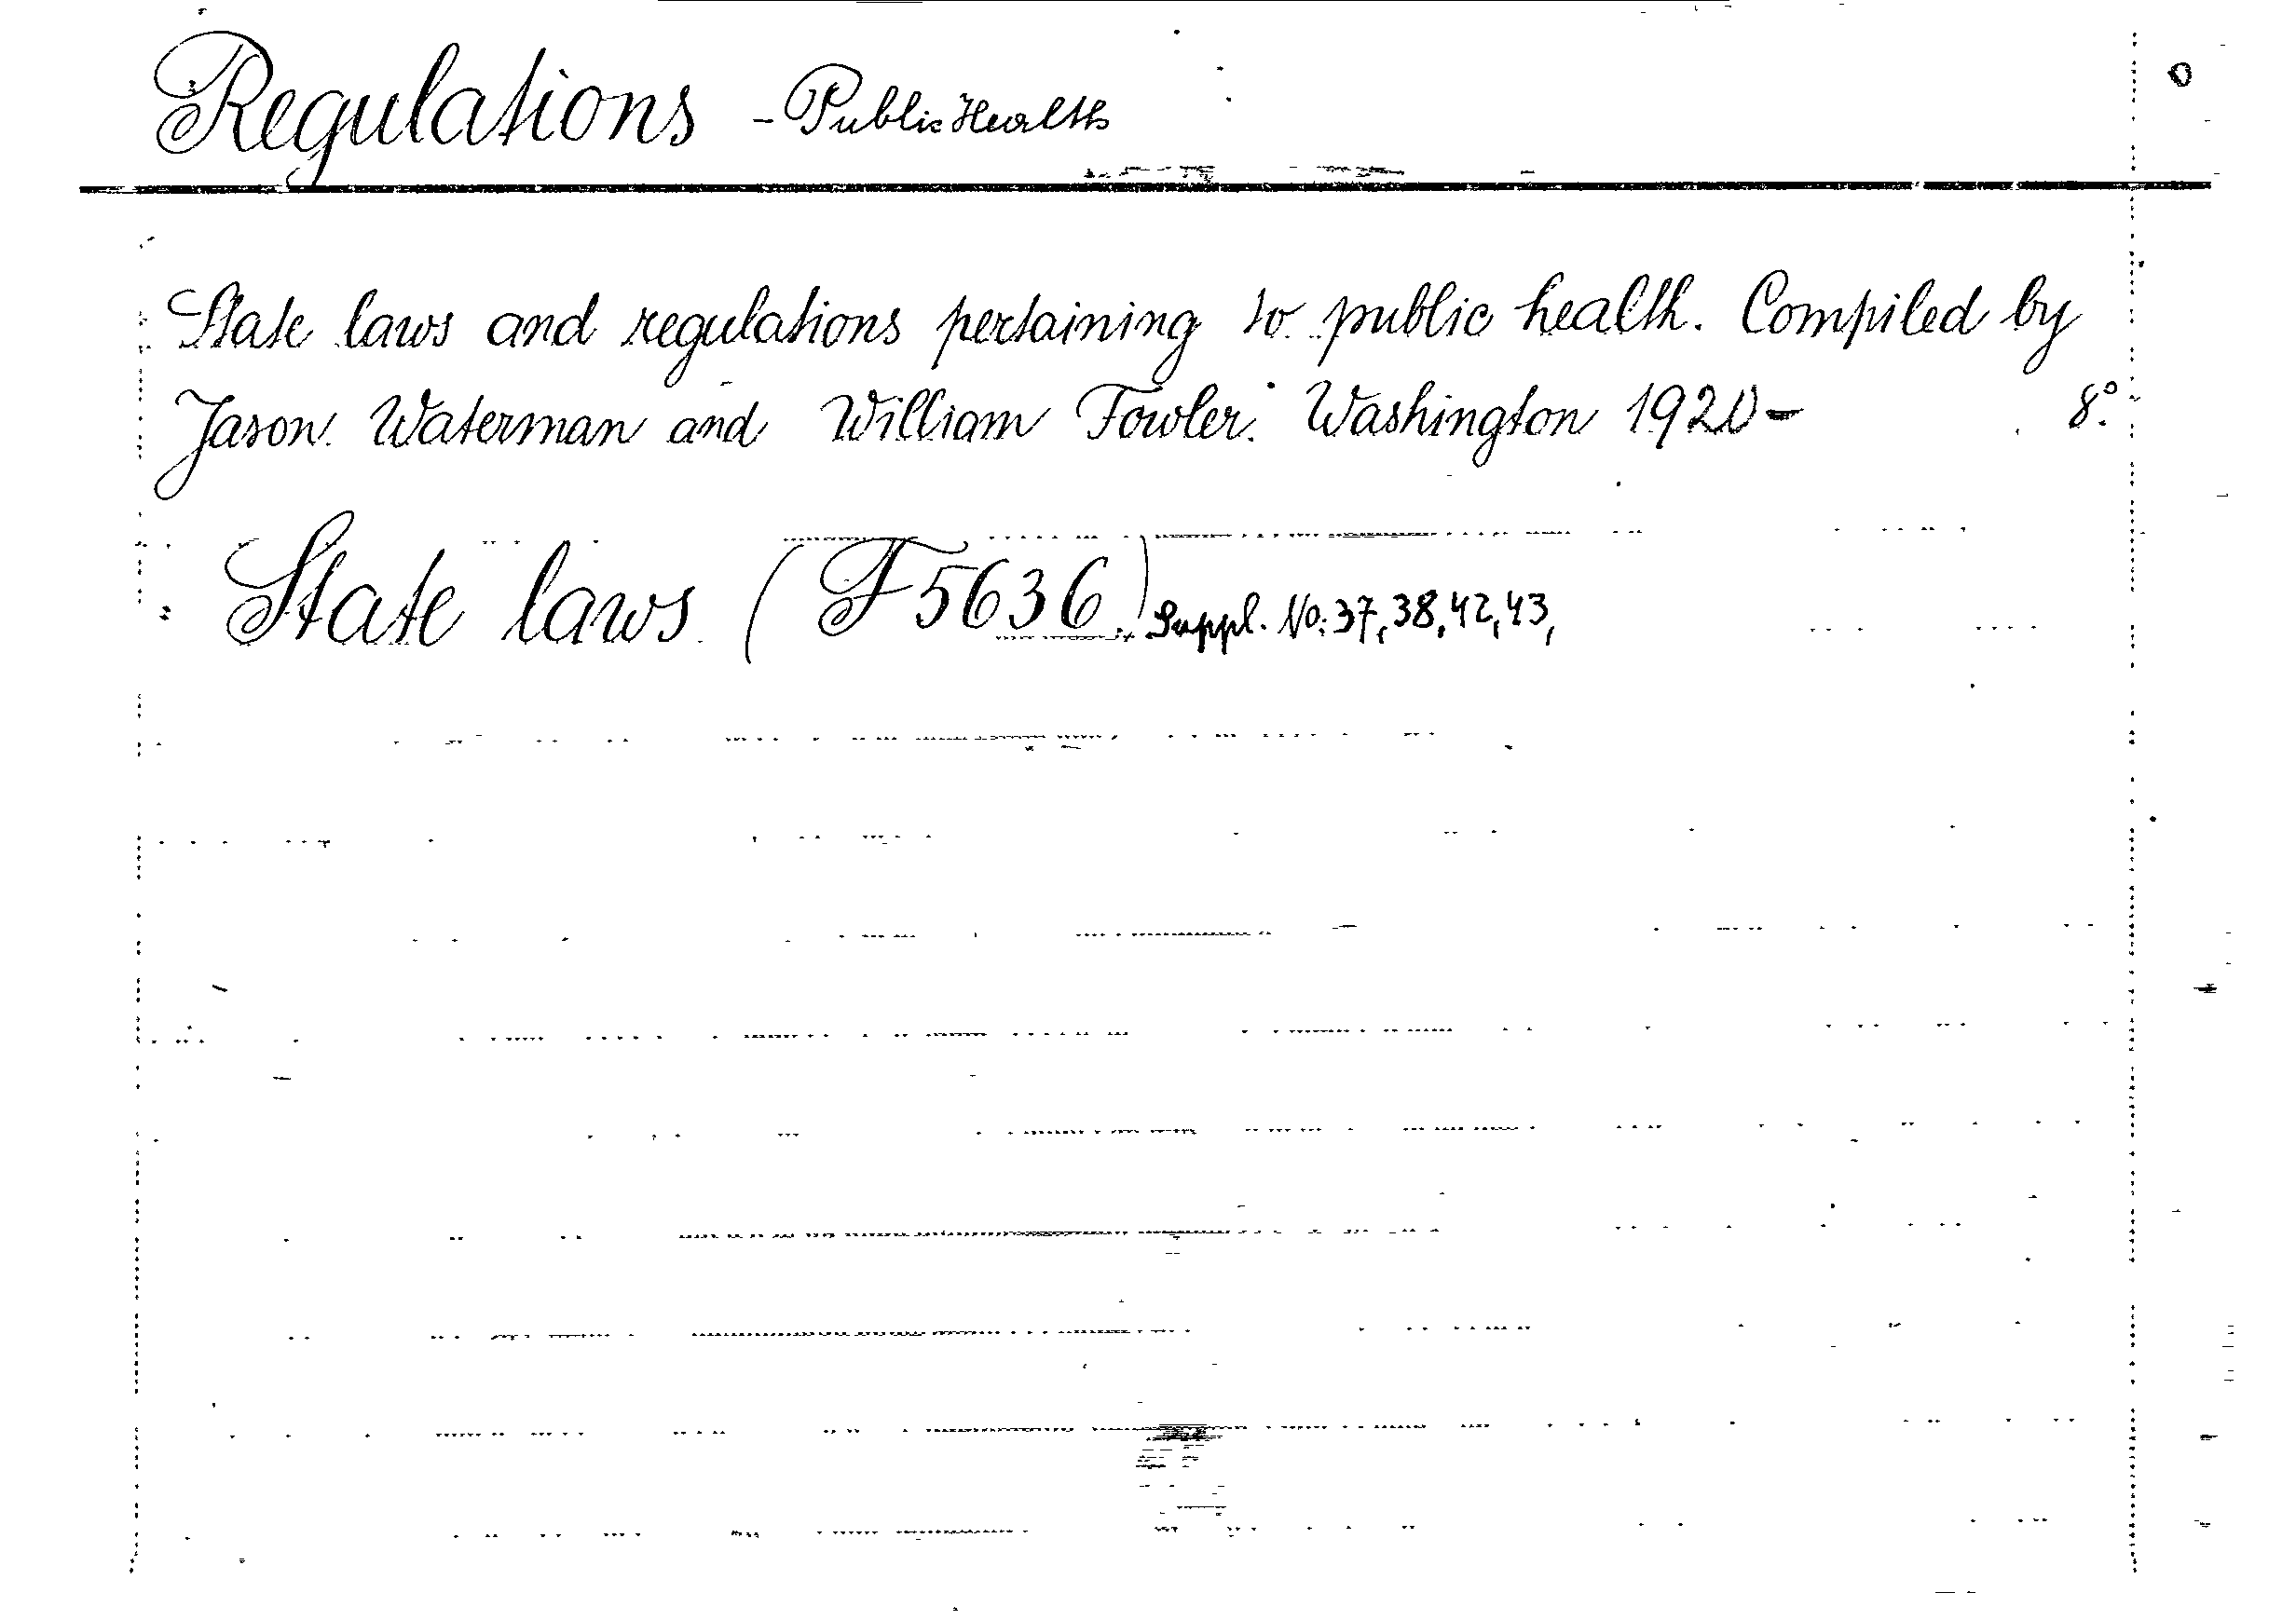 Regulations - Public Health
State laws and regulations pertaining to public health. Compiled by
Jason Waterman and William Fowler. Washington 1920- 8°.
State laws (F5636.) Suppl. No: 37, 38, 42, 43,